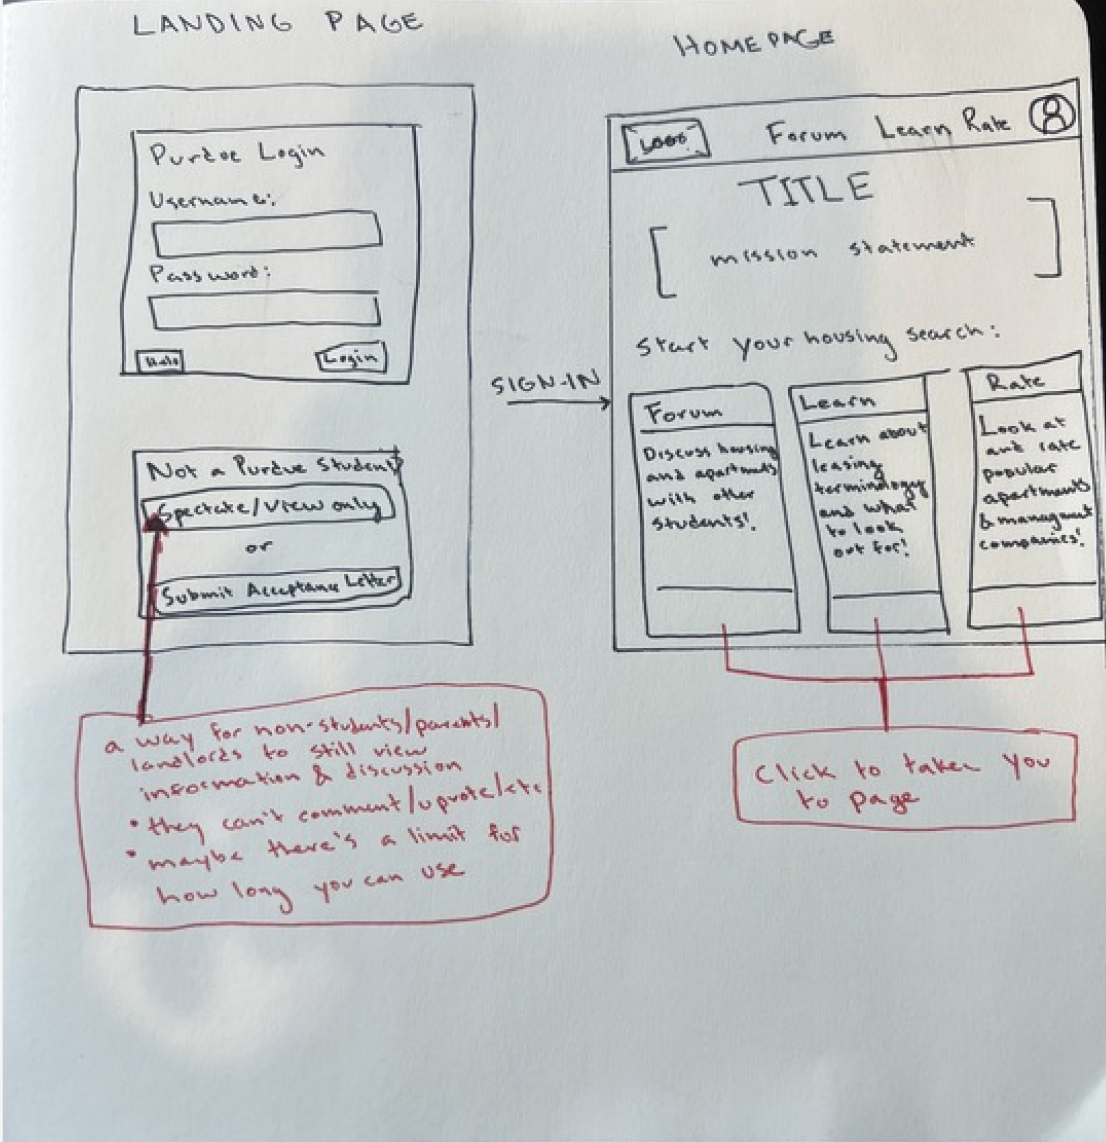 LANDING PAGE
Purdue Login
Username:
Password:
Help
Login
Not a Purdue Student?
Spectate/View only
or
Submit Acceptance Letter
a way for non-students/parents/
landlords to still view
information & discussion
• they can't comment/upvote/etc
• maybe there's a limit for
how long you can use
SIGN-IN
HOMEPAGE
LOGO
Forum Learn Rate
TITLE
mission statement
Start your housing search:
Forum
Discuss housing
and apartments
with other
students!
Learn
Learn about
leasing
terminology
and what
to look
out for!
Rate
Look at
and rate
popular
apartments
& managment
companies!
Click to taken you
to page